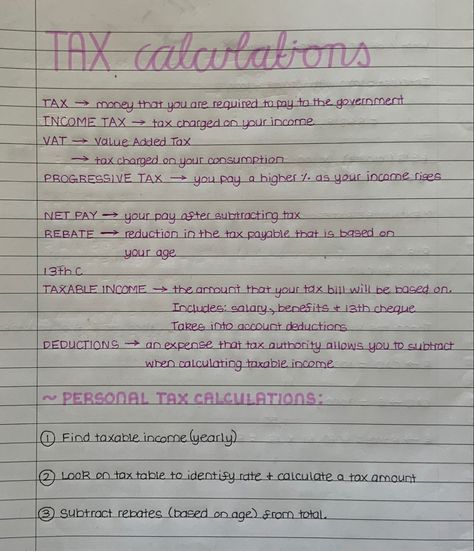 TAX calculations
TAX → money that you are required to pay to the government
INCOME TAX → tax charged on your income
VAT → Value Added Tax
→ tax charged on your consumption
PROGRESSIVE TAX → you pay a higher % as your income rises
NET PAY → your pay after subtracting tax
REBATE → reduction in the tax payable that is based on
your age
13th C
TAXABLE INCOME → the amount that your tax bill will be based on.
Includes: salary, benefits + 13th cheque
Takes into account deductions
DEDUCTIONS → an expense that tax authority allows you to subtract
when calculating taxable income
~ PERSONAL TAX CALCULATIONS:
① Find taxable income (yearly)
② Look on tax table to identify rate + calculate a tax amount
③ Subtract rebates (based on age) from total.